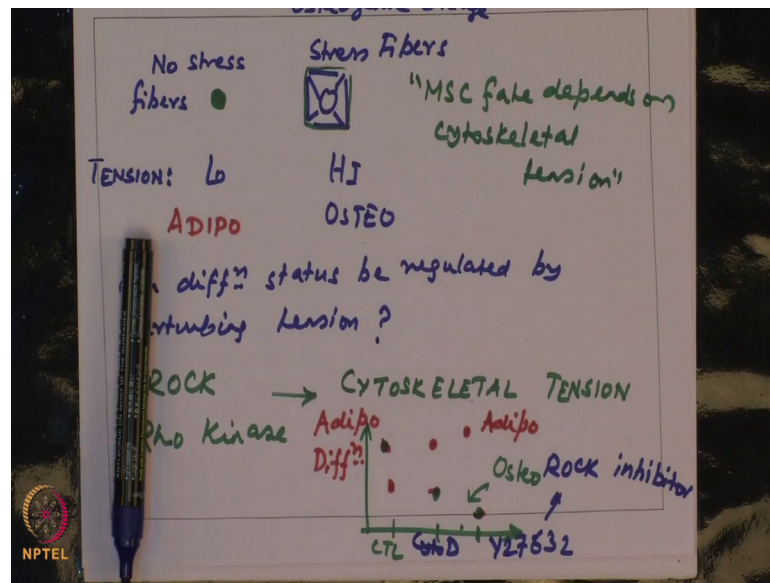 No stress
fibers
Stress Fibers
"MSC fate depends on
cytoskeletal
tension"
TENSION: LO HI
ADIPO OSTEO
diffⁿ status be regulated by
tension?
ROCK → CYTOSKELETAL TENSION
Rho Kinase
Adipo
Diffⁿ
Adipo
Osteo
ROCK inhibitor
CTL CytoD Y27632
NPTEL